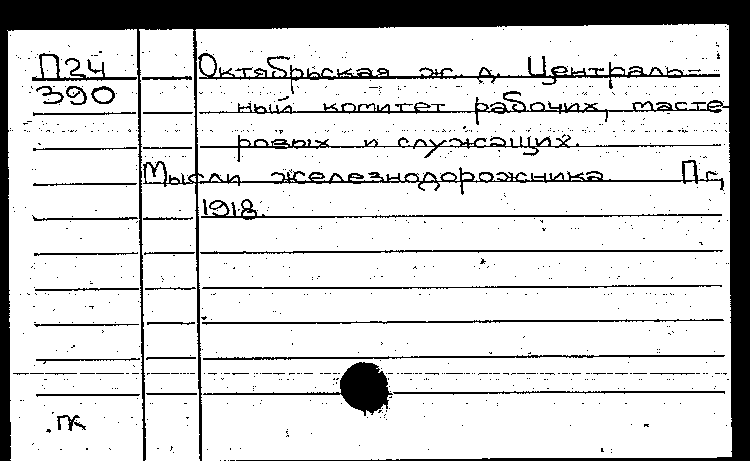 П24 Октябрьская ж. д. Централь-
390 ный комитет рабочих, масте
ровых и служащих.
Мысли железнодорожника Пг,
1918.
гк